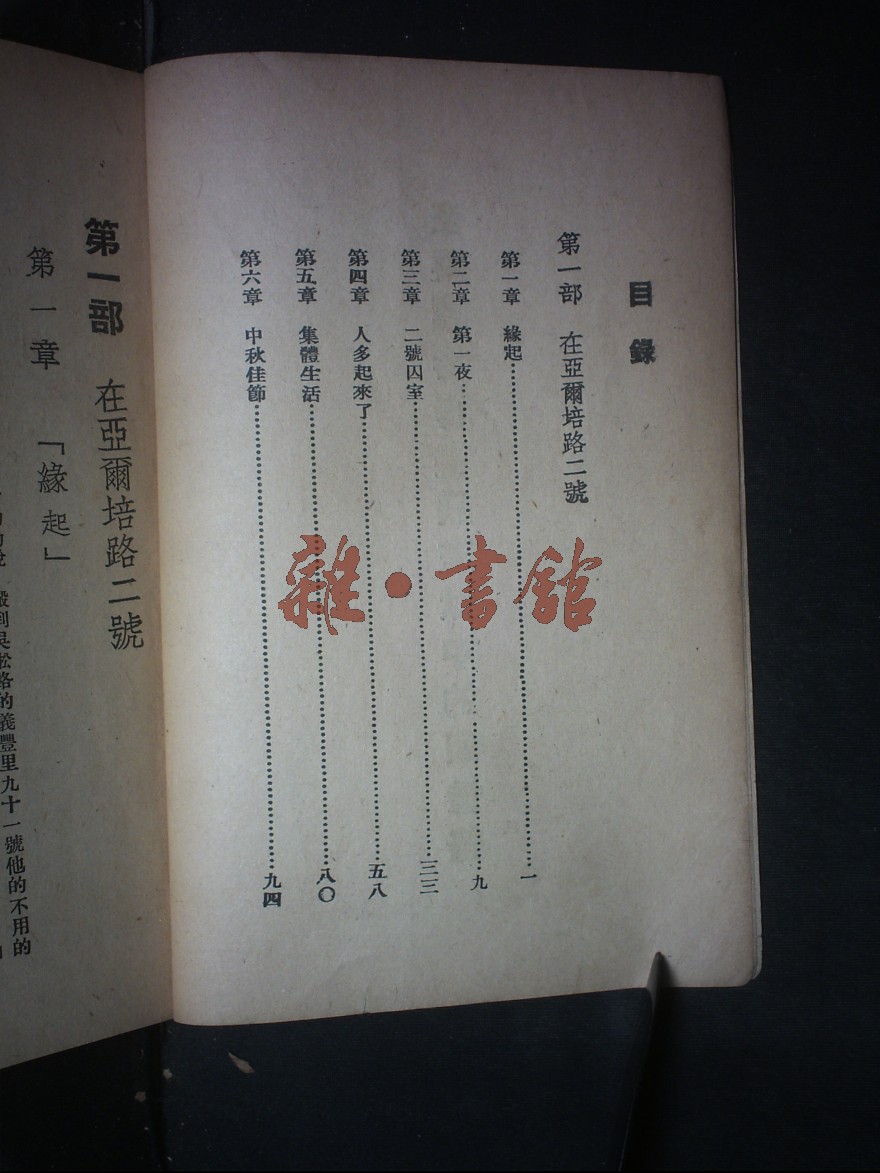 目錄
第一部 在亞爾培路二號
第一章 緣起……一
第二章 第一夜……九
第三章 二號囚室……三三
第四章 人多起來了……五八
第五章 集體生活……八〇
第六章 中秋佳節……九四
雜·書館
第一部 在亞爾培路二號
第一章 「緣起」
到吳淞路的義豐里九十一號他的不用的